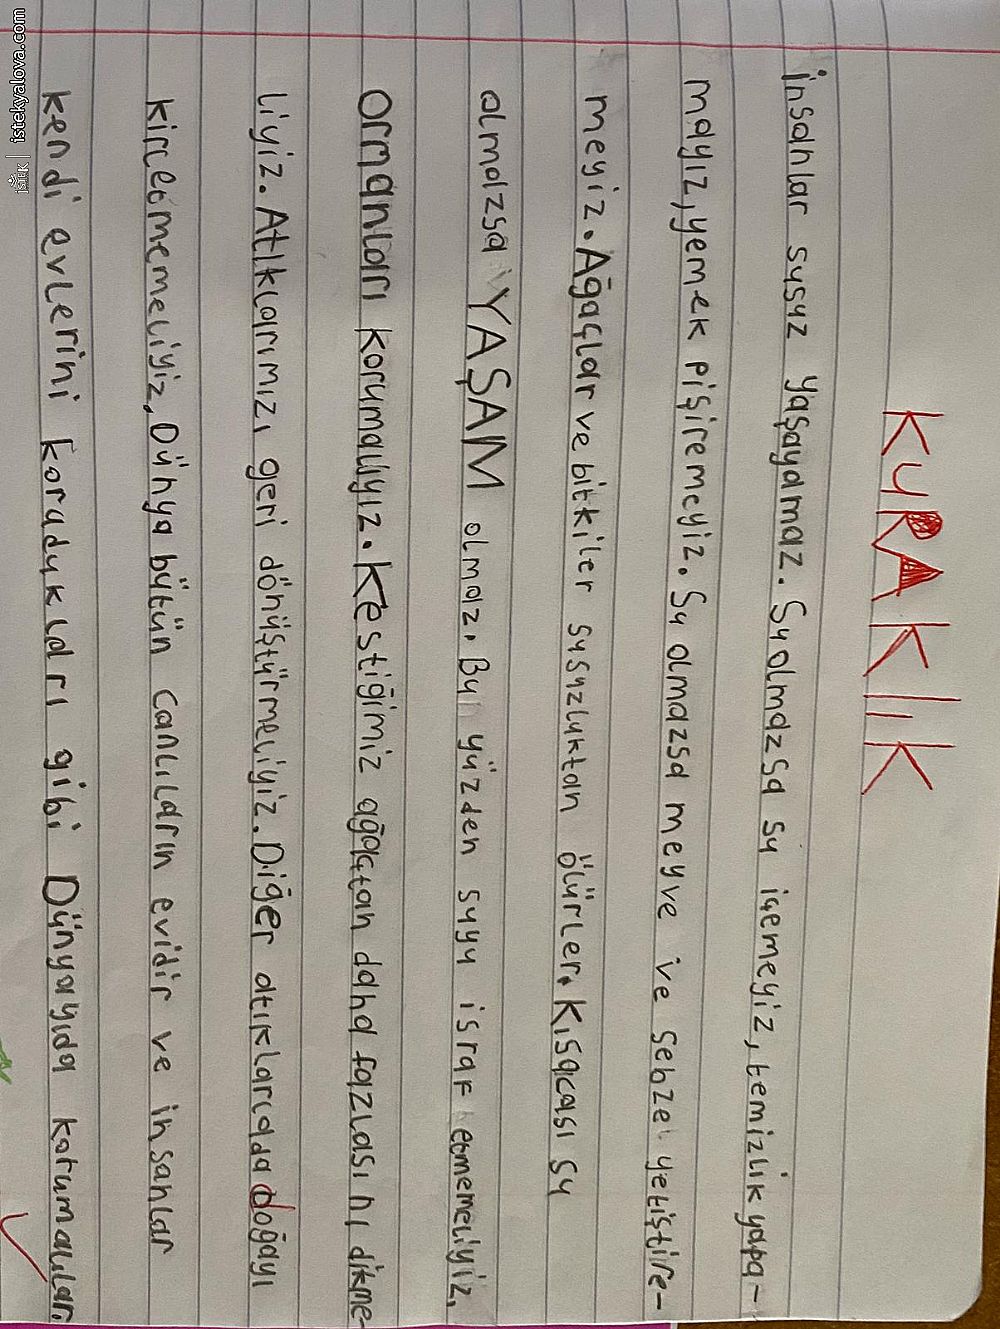 KURAKLIK
insanlar susuz yaşayamaz. Su olmazsa su içemeyiz, temizlik yapa-
mayız, yemek pişiremeyiz. Su olmazsa meyve ve sebze yetiştire-
meyiz. Ağaçlar ve bitkiler susuzluktan ölürler. Kısacası su
olmazsa YAŞAM olmaz. Bu yüzden suyu israf etmemeliyiz.
Ormanları korumalıyız. Kestiğimiz ağaçtan daha fazlasını dikme-
liyiz. Atıklarımızı geri dönüştürmeliyiz. Diğer atıklarlada doğayı
kirletmemeliyiz. Dünya bütün canlıların evidir ve insanlar
kendi evlerini korudukları gibi Dünyayıda korumalılar.
iSTEK | istekyalova.com